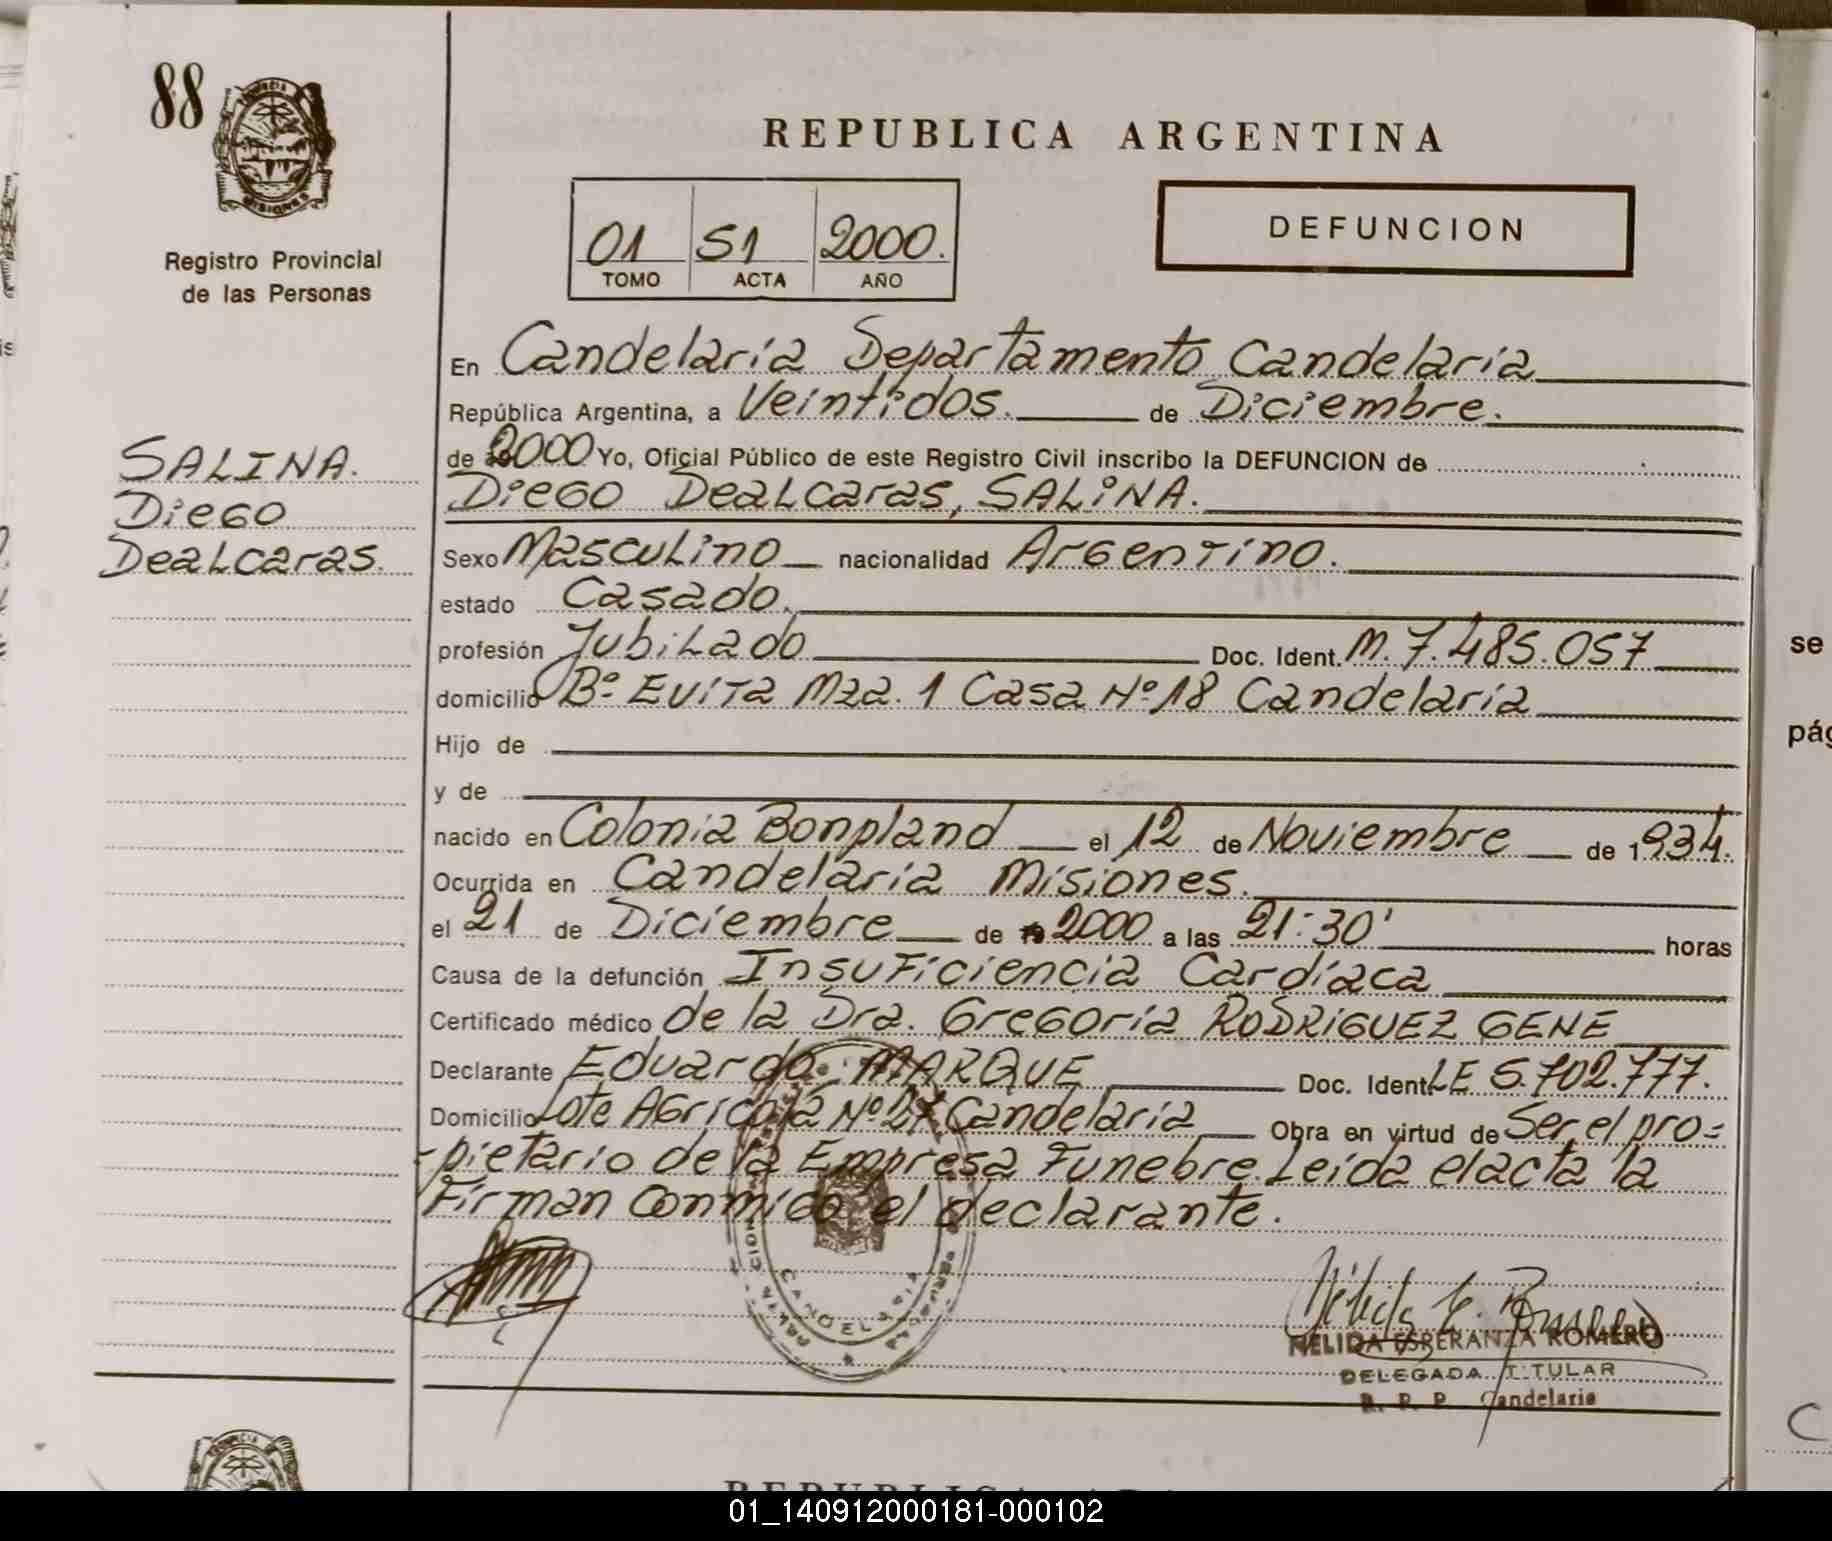 88
PROVINCIA DE
MISIONES
Registro Provincial
de las Personas
REPUBLICA ARGENTINA
01 51 2000.
TOMO ACTA AÑO
DEFUNCION
SALINA.
Diego
Dealcaras.
En Candelaria Departamento Candelaria
República Argentina, a Veintidos. de Diciembre.
de 2000 Yo, Oficial Público de este Registro Civil inscribo la DEFUNCION de
Diego Dealcaras, SALINA.
Sexo Masculino nacionalidad Argentino.
estado Casado.
profesión Jubilado Doc. Ident. M. 7.485.057
domicilio Bº Evita Mza. 1 Casa Nº 18 Candelaria
Hijo de
y de
nacido en Colonia Bonpland el 12 de Noviembre de 1934.
Ocurrida en Candelaria Misiones.
el 21 de Diciembre de 2000 a las 21:30' horas
Causa de la defunción Insuficiencia Cardíaca
Certificado médico de la Dra. Gregoria RODRIGUEZ GENE
Declarante Eduardo MARQUE Doc. Ident. LE 5.702.777.
Domicilio Lote Agricola Nº 27 Candelaria Obra en virtud de Ser el pro=
-pietario de la Empresa Funebre. Leida el acta la
Firman conmigo el declarante.
CANDELARIA
NELIDA ESPERANZA ROMERO
DELEGADA TITULAR
R. P. P. Candelaria
se
pág
REPUBLICA
01_140912000181-000102